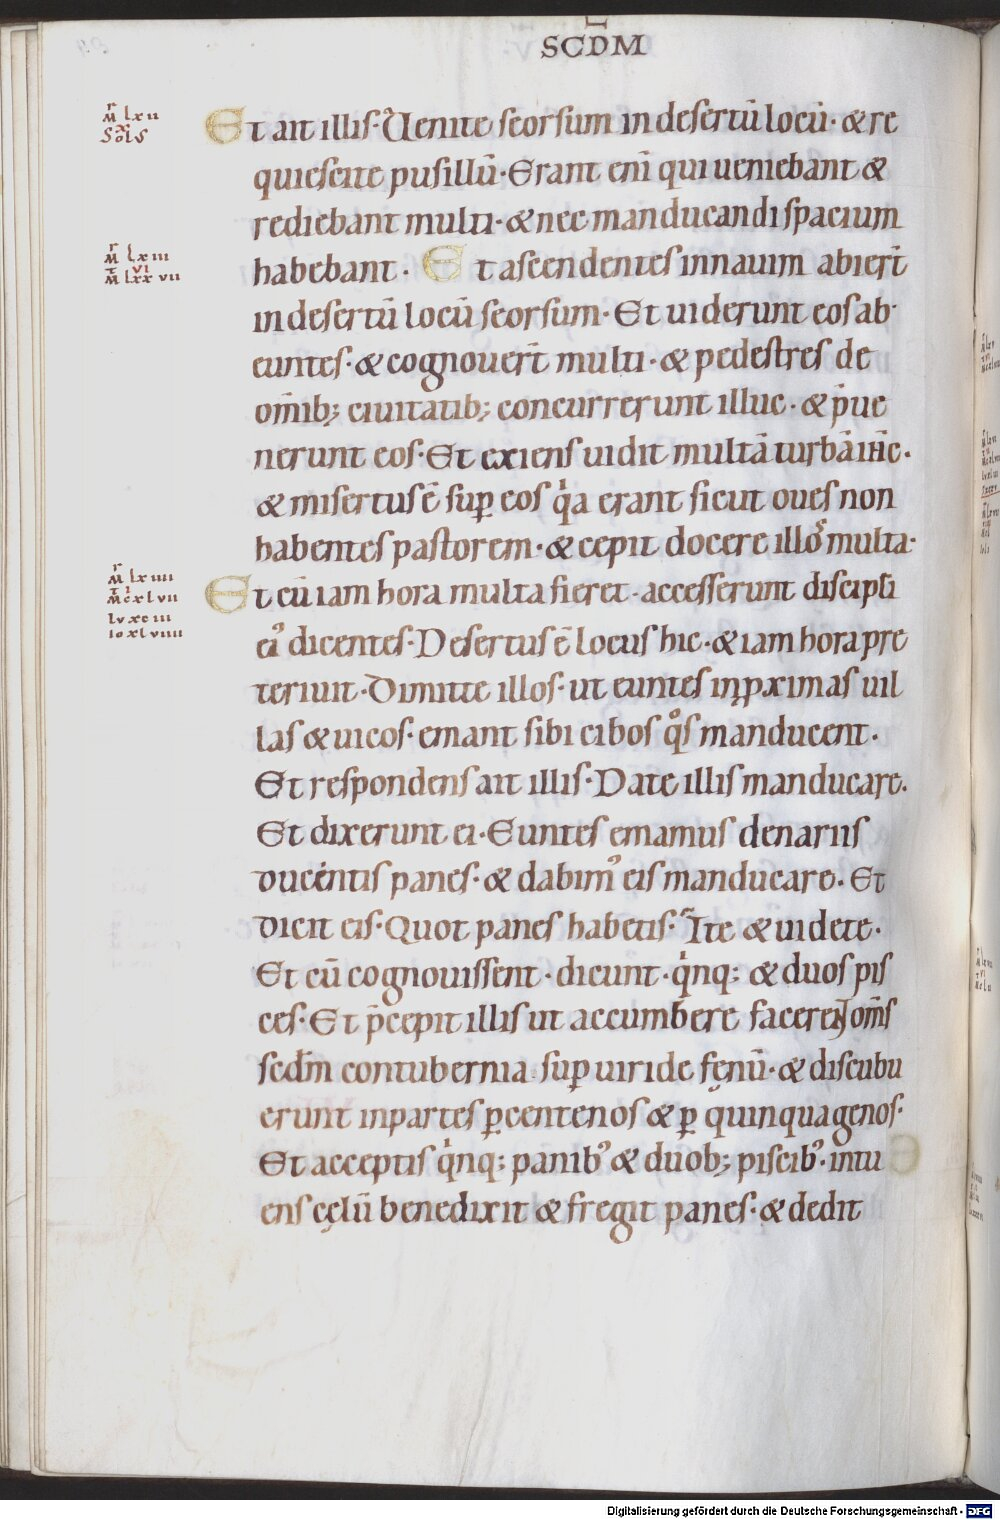 SCDM
Et ait illis· Venite seorsum in desertū locū· & re
quiescite pusillū· Erant eni̅ qui ueniebant &
rediebant multi· & nec manducandi spacium
habebant· Et ascendentes in nauim abier̅t
in desertū locū seorsum· Et uiderunt eos ab
euntes· & cognouer̅t multi· & pedestres de
om̅ib; ciuitatib; concurrerunt illuc· & p̅ue
nerunt eos· Et exiens uidit multā turbā ih̅c·
& misertus ē sup̱ eos qͥa erant sicut oues non
habentes pastorem· & cepit docere illoꝰ multa·
Et cū iam hora multa fieret· accesserunt discipłi
eiꝰ dicentes· Desertus ē locus hic· & iam hora pre
teriuit· Dimitte illos· ut euntes in ꝓximas uil
las & uicos· emant sibi cibos qͦs manducent·
Et respondens ait illis· Date illis manducare·
Et dixerunt ei· Euntes emamus denariis
ducentis panes· & dabimꝰ eis manducare· Et
dicit eis· Quot panes habetis· Ite & uidete·
Et cū cognouissent· dicunt· qͥnq; & duos pis
ces· Et p̅cepit illis ut accumbere facerent om̅s
scdm̅ contubernia sup̱ uiride fenū· & discubu
erunt in partes ꝑ centenos & ꝑ quinquagenos·
Et acceptis qͥnq; panibꝰ & duob; piscibꝰ· intu
ens cęlū benedixit & fregit panes· & dedit
M lxii
SolS
M lxiii
M lxxvii
M lxiiii
M cxlvii
lv xciii
io xlviiii
Digitalisierung gefördert durch die Deutsche Forschungsgemeinschaft - DFG